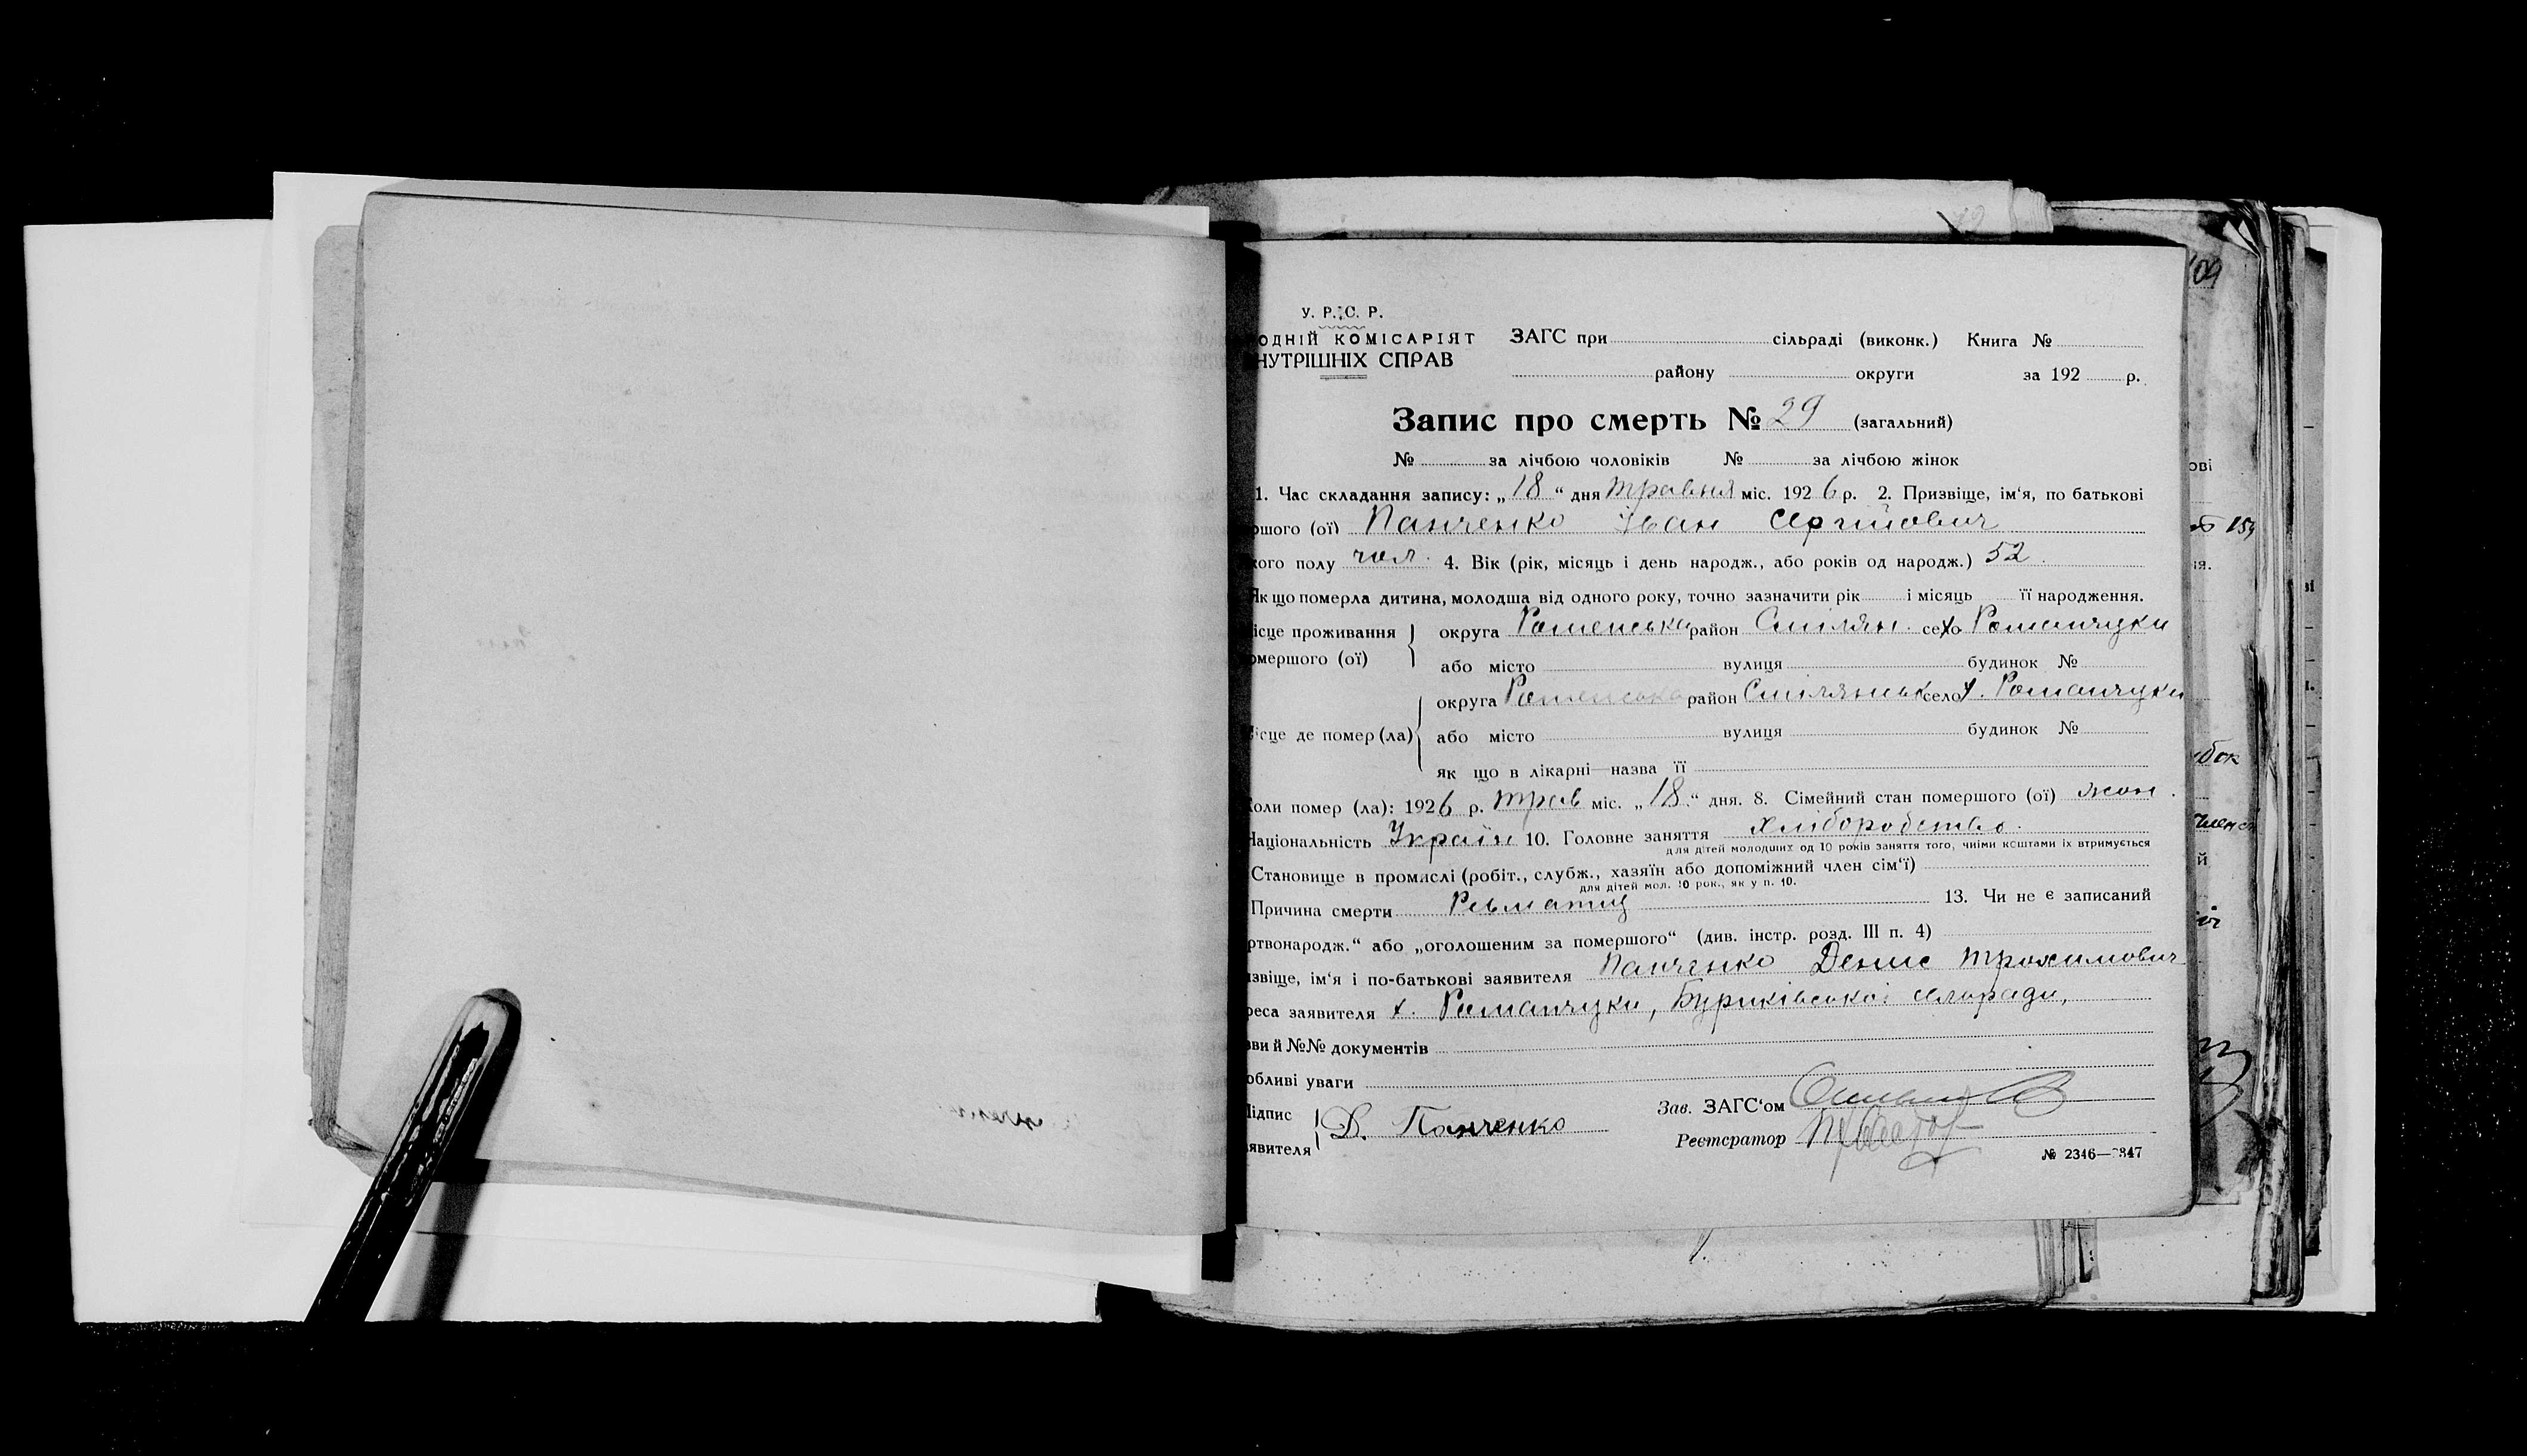 У. Р. С. Р.
ОДНІЙ КОМІСАРІЯТ
НУТРІШНІХ СПРАВ
ЗАГС при сільраді (виконк.) Книга №
району округи за 192 р.
Запис про смерть № 29 (загальний)
№ за лічбою чоловіків № за лічбою жінок
1. Час складання запису: „18“ дня травня міс. 1926 р. 2. Призвіще, ім‘я, по батькові
ршого (ої) Панченко Іван Сергійович
кого полу чол. 4. Вік (рік, місяць і день народж., або років од народж.) 52.
Як що померла дитина, молодша від одного року, точно зазначити рік і місяць її народження.
ісце проживання
омершого (ої)
округа Роменська район Смілян. село Романчуки
або місто вулиця будинок №
ісце де помер (ла)
округа Роменська район Смілянськ село х. Романчуки
або місто вулиця будинок №
як що в лікарні—назва її
Коли помер (ла): 1926 р. трав міс. „18“ дня. 8. Сімейний стан помершого (ої) жон.
Національність Україн 10. Головне заняття хліборобство.
для дітей молодших од 10 років заняття того, чиїми коштами їх втримується
Становище в промислі (робіт., службж., хазяїн або допоміжний член сім‘ї)
для дітей мол. 10 рок., як у п. 10.
Причина смерти Ревматиц 13. Чи не є записаний
ртвонародж.“ або „оголошеним за помершого“ (див. інстр. розд. III п. 4)
ізвіще, ім‘я і по-батькові заявителя Панченко Денис Трохимович
реса заявителя х. Романчуки, Буриківської сільради,
зви й №№ документів
обливі уваги
Підпис
явителя
Д. Панченко
Зав. ЗАГС‘ом
Реєстратор
№ 2346—2347